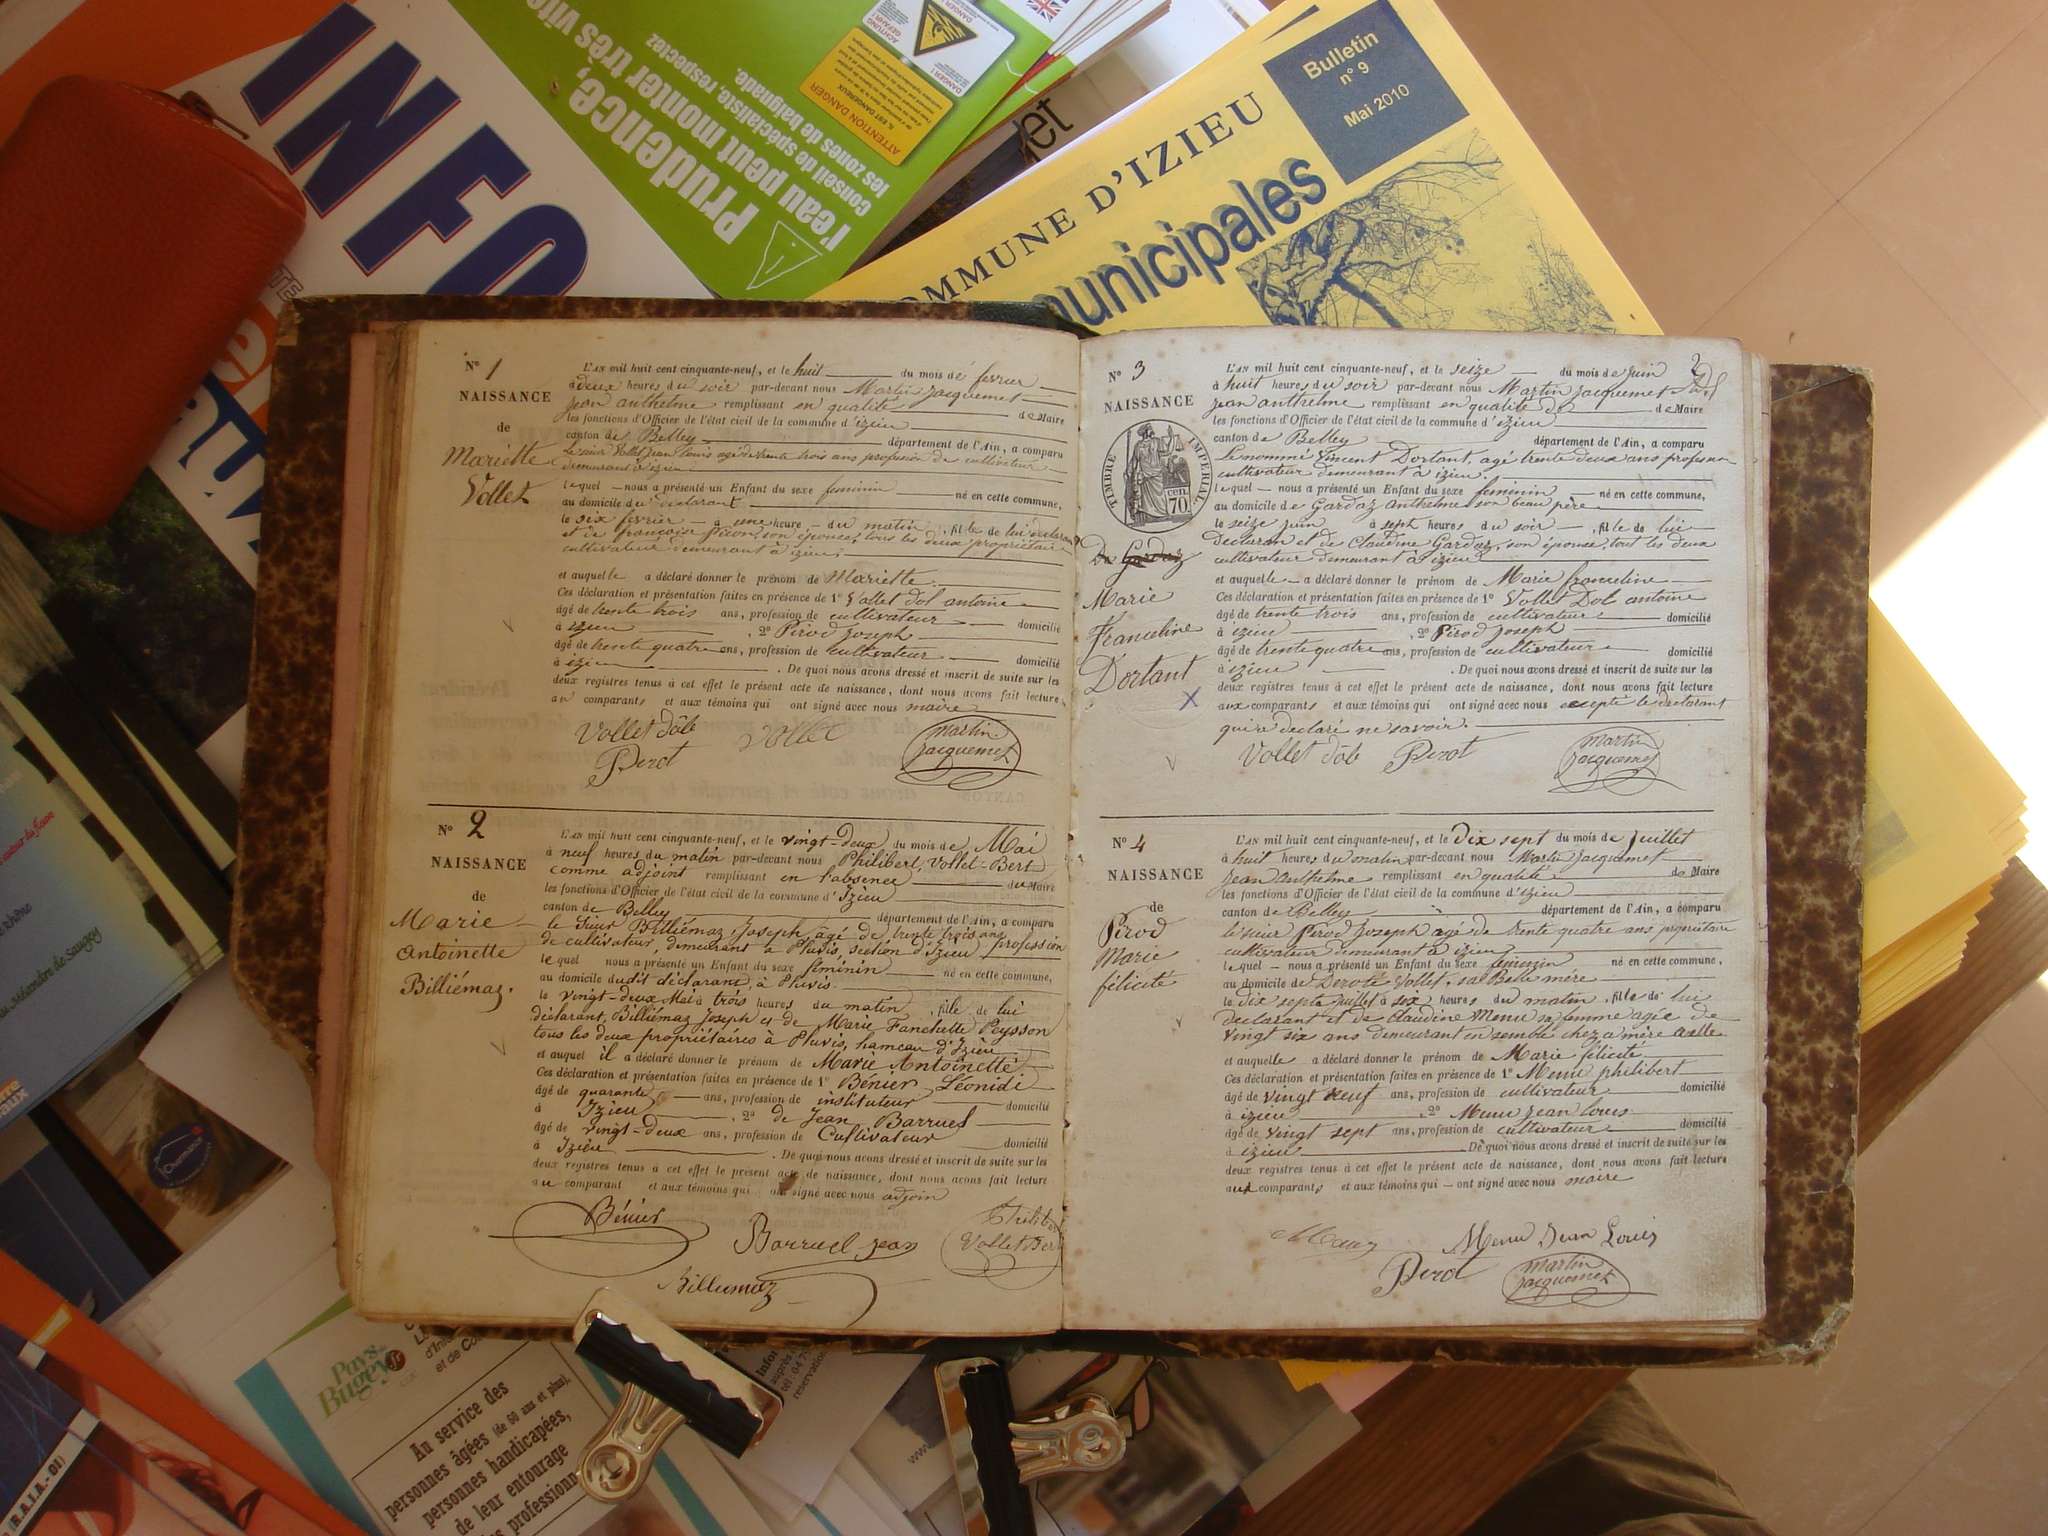 INFO
Prudence,
l'eau peut monter très vite
conseil de spécialiste, respectez
les zones de baignade.
ATTENTION DANGER
IL EST DANGEREUX
COMMUNE D'IZIEU
municipales
Bulletin
n° 9
Mai 2010
N° 1
NAISSANCE
de
Mariette
Vollet
L'AN mil huit cent cinquante-neuf, et le huit du mois de fevrier
à deux heures du soir par-devant nous Martin jacquemet
jean anthelme remplissant en qualité de Maire
les fonctions d'Officier de l'état civil de la commune d'izieu
canton de Belley département de l'Ain, a comparu
le sieur Vollet jean louis agé de trente trois ans profession de cultivateur
demeurant à izieu
lequel nous a présenté un Enfant du sexe feminin né en cette commune,
au domicile du déclarant
le six fevrier à une heure du matin, fille de lui déclarant
et de françoise Picon, son épouse, tous les deux propriétaire
cultivateur demeurant à izieu;
et auquelle a déclaré donner le prénom de Mariette.
Ces déclaration et présentation faites en présence de 1° Vollet dol antoine
âgé de trente trois ans, profession de cultivateur domicilié
à izieu, 2° Pirod joseph
âgé de trente quatre ans, profession de cultivateur domicilié
à izieu. De quoi nous avons dressé et inscrit de suite sur les
deux registres tenus à cet effet le présent acte de naissance, dont nous avons fait lecture
au comparants et aux témoins qui ont signé avec nous maire
Vollet dôle Vollet Martin
Perot jacquemet
N° 2
NAISSANCE
de
Marie
Antoinette
Billiémaz.
L'AN mil huit cent cinquante-neuf, et le vingt-deux du mois de Mai
à neuf heures du matin par-devant nous Philibert Vollet-Bert
comme adjoint remplissant en l'absence du Maire
les fonctions d'Officier de l'état civil de la commune d'Izieu
canton de Belley département de l'Ain, a comparu
le sieur Billiémaz Joseph âgé de trente trois ans profession
de cultivateur, demeurant à Pluvis, section d'Izieu
lequel nous a présenté un Enfant du sexe féminin né en cette commune,
au domicile dudit déclarant, à Pluvis.
le vingt-deux Mai à trois heures du matin, fille de lui
déclarant, Billiémaz Joseph et de Marie Fanchette Peysson
tous les deux propriétaires à Pluvis, hameau d'Izieu
et auquel il a déclaré donner le prénom de Marie Antoinette
Ces déclaration et présentation faites en présence de 1° Bénier Léonide
âgé de quarante ans, profession de instituteur domicilié
à Izieu, 2° de Jean Barruel
âgé de vingt-deux ans, profession de Cultivateur domicilié
à Izieu. De quoi nous avons dressé et inscrit de suite sur les
deux registres tenus à cet effet le présent acte de naissance, dont nous avons fait lecture
au comparant et aux témoins qui ont signé avec nous adjoin
Bénier Barruel jean Philibert
Vollet Bert
Billiemaz
2
N° 3
NAISSANCE
TIMBRE IMPERIAL
70 cen
De Gardaz
Marie
Franceline
Dortant
L'AN mil huit cent cinquante-neuf, et le seize du mois de juin
à huit heures du soir par-devant nous Martin jacquemet
jean anthelme remplissant en qualité de de Maire
les fonctions d'Officier de l'état civil de la commune d'izieu
canton de Belley département de l'Ain, a comparu
Le nommé Vincent Dortant, agé trente deux ans profession
cultivateur demeurant à izieu.
lequel nous a présenté un Enfant du sexe feminin né en cette commune,
au domicile de Gardaz Anthelme son beau père
le seize juin à sept heures du soir, fille de lui
Declaran et de Claudine Gardaz, son épouse, tout les deux
cultivateur demeurant à izieu
et auquelle a déclaré donner le prénom de Marie franceline
Ces déclaration et présentation faites en présence de 1° Vollet Dol antoine
âgé de trente trois ans, profession de cultivateur domicilié
à izieu, 2° Pirod joseph
âgé de trente quatre ans, profession de cultivateur domicilié
à izieu. De quoi nous avons dressé et inscrit de suite sur les
deux registres tenus à cet effet le présent acte de naissance, dont nous avons fait lecture
aux comparants et aux témoins qui ont signé avec nous excepté le declarant
qui a declaré ne savoir.
Vollet dôle Perot Martin
jacquemet
N° 4
NAISSANCE
de
Pirod
Marie
félicité
L'AN mil huit cent cinquante-neuf, et le Dix sept du mois de juillet
à huit heures du matin par-devant nous Martin jacquemet
jean anthelme remplissant en qualité de Maire
les fonctions d'Officier de l'état civil de la commune d'izieu
canton de Belley département de l'Ain, a comparu
le sieur Pirod Joseph agé de trente quatre ans propriétaire
cultivateur demeurant à izieu
lequel nous a présenté un Enfant du sexe feminin né en cette commune,
au domicile de Derote Vollet, sa Belle mère
le dix sept juillet à six heures du matin, fille de lui
declarant et de claudine Menu sa femme agée de
vingt six ans demeurant ensemble chez a mère a elle
et auquelle a déclaré donner le prénom de Marie félicité
Ces déclaration et présentation faites en présence de 1° Menu philibert
âgé de vingt neuf ans, profession de cultivateur domicilié
à izieu, 2° Menu jean louis
âgé de vingt sept ans, profession de cultivateur domicilié
à izieu De quoi nous avons dressé et inscrit de suite sur les
deux registres tenus à cet effet le présent acte de naissance, dont nous avons fait lecture
aux comparants et aux témoins qui ont signé avec nous maire
Menu Menu Jean Louis
Perot Martin
jacquemet
Pays
Bugey
Au service des
personnes âgées (de 60 ans et plus),
personnes handicapées,
de leur entourage
professionn